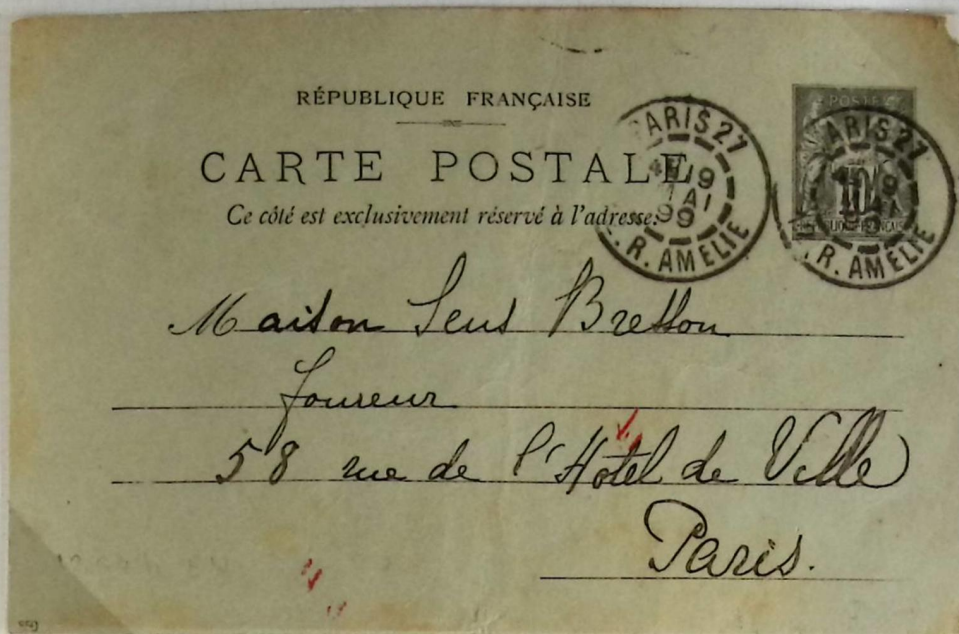 RÉPUBLIQUE FRANÇAISE
CARTE POSTALE
Ce côté est exclusivement réservé à l'adresse.
POSTES
10
PARIS 27
19
MAI
99
R. AMELIE
PARIS 27
R. AMELIE
Maison Sens Bresson
foureur
58 rue de l'Hôtel de Ville
Paris.